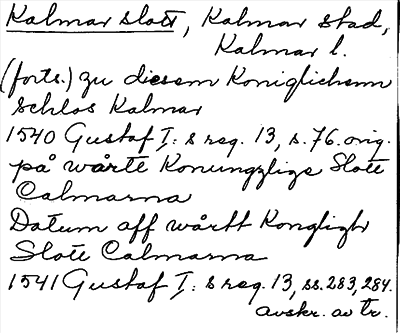 Kalmar slott, Kalmar stad,
Kalmar l.
(forts.) zu diesem Koniglichenn
Schlos Kalmar
1540 Gustaf I: s reg. 13, s. 76. orig.
på wårte Konungzlige Slott
Calmarna
Datum aff wårtt Kongligh
Slott Calmarna
1541 Gustaf I: s reg. 13, ss. 283, 284.
avskr. av tr.